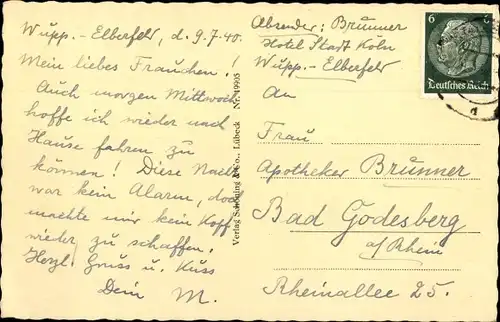 Wupp.-Elberfeld, d. 9.7.40.
Mein liebes Frauchen!
Auch morgen Mittwoch
hoffe ich wieder nach
Hause fahren zu
können! Diese Nacht
war kein Alarm, doch
machte mir kein Kopf
wieder zu schaffen.
Herzl. Gruss u. Kuss
Dein M.
Verlag Schöning & Co., Lübeck Nr. 19995
Absender: Brunner
Hotel Stadt Köln
Wupp.-Elberfeld
An
Frau
Apotheker Brunner
Bad Godesberg
a/Rhein
Rheinallee 25.
6
Deutsches Reich